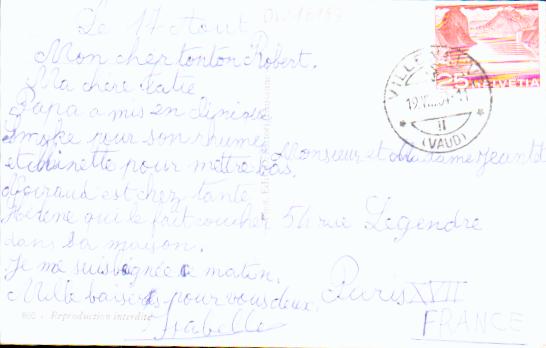 Le 17 Aout
Mon cher tonton Robert.
Ma chère tatie
Papa a mis en clinique
Smoke pour son rhume
et Minette pour mettre bas.
Noiraud est chez tante
Hélène qui le fait coucher
dans sa maison.
Je me suis baignée ce matin.
Mille baisers pour vous deux.
Isabelle
Monsieur et Madame Jeantet
54 rue Legendre
Paris XVII
FRANCE
25 HELVETIA
(VAUD)
Reproduction interdite